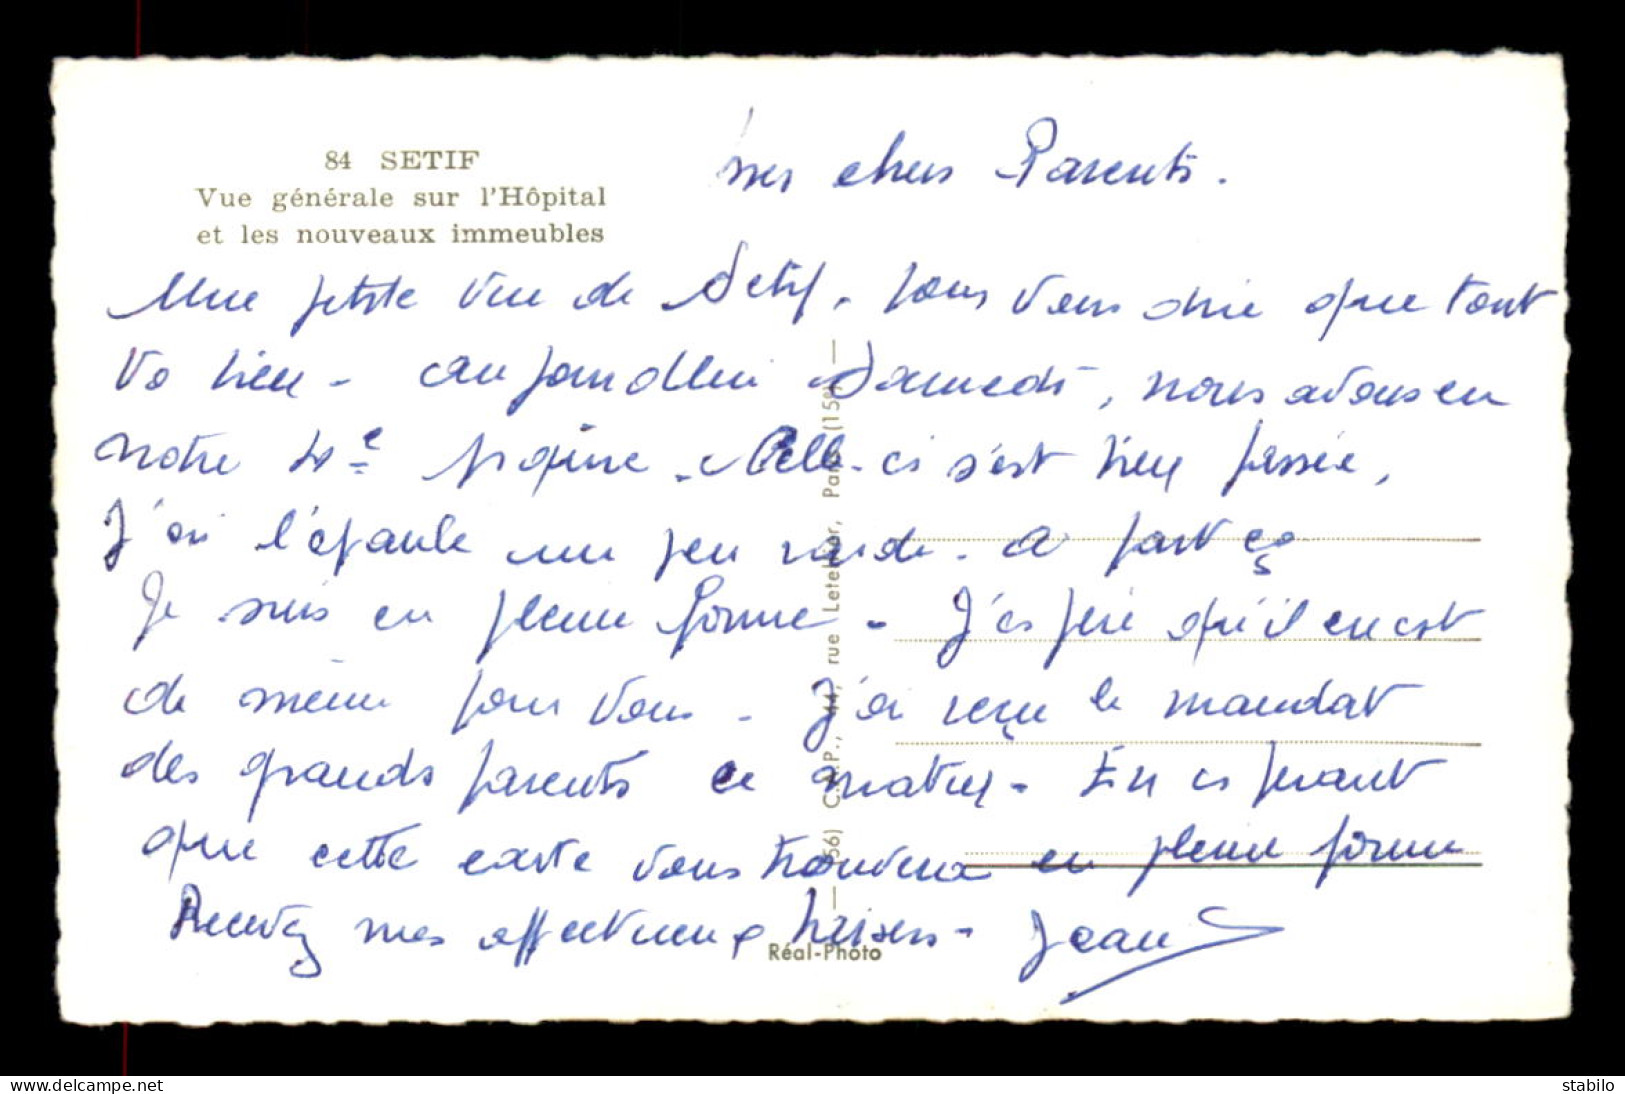 84 SETIF
Vue générale sur l'Hôpital
et les nouveaux immeubles
Mes chers Parents.
Une petite vue de Setif, pour vous dire que tout
va bien - aujourd'hui Samedi, nous avons eu
notre 4e piqûre - Celle-ci s'est bien passée,
J'ai l'épaule un peu raide - a part ça
Je suis en pleine forme - J'espère qu'il en est
de même pour vous - J'ai reçu le mandat
des grands parents ce matin - En espérant
que cette carte vous trouvera en pleine forme
Recevez mes affectueux baisers - Jean
(56) C.A.P., 44, rue Letellier, Paris (15e)
Réal-Photo
www.delcampe.net
stabilo